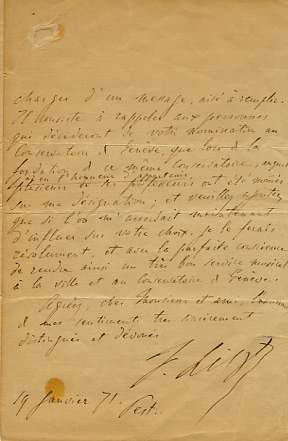 charger d'un message, aisé à remplir.
Il consiste à rappeler aux personnes
qui décideront de votre nomination au
Conservatoire de Genève, que lors de la
fondation de ce même Conservatoire, auquel
j'ai eu l'honneur d'
plusieurs de ses professeurs ont été nommés
sur ma désignation; et veuillez ajouter
que si l'on m'accordait maintenant
d'influer sur votre choix, je le ferais
résolument et avec la parfaite conscience
de rendre ainsi un très bon service musical
à la ville et au Conservatoire de Genève.
Agréez, cher Monsieur et ami,
de mes sentiments très sincèrement
distingués et dévoués
F. Liszt
19 Janvier 71. Pest.